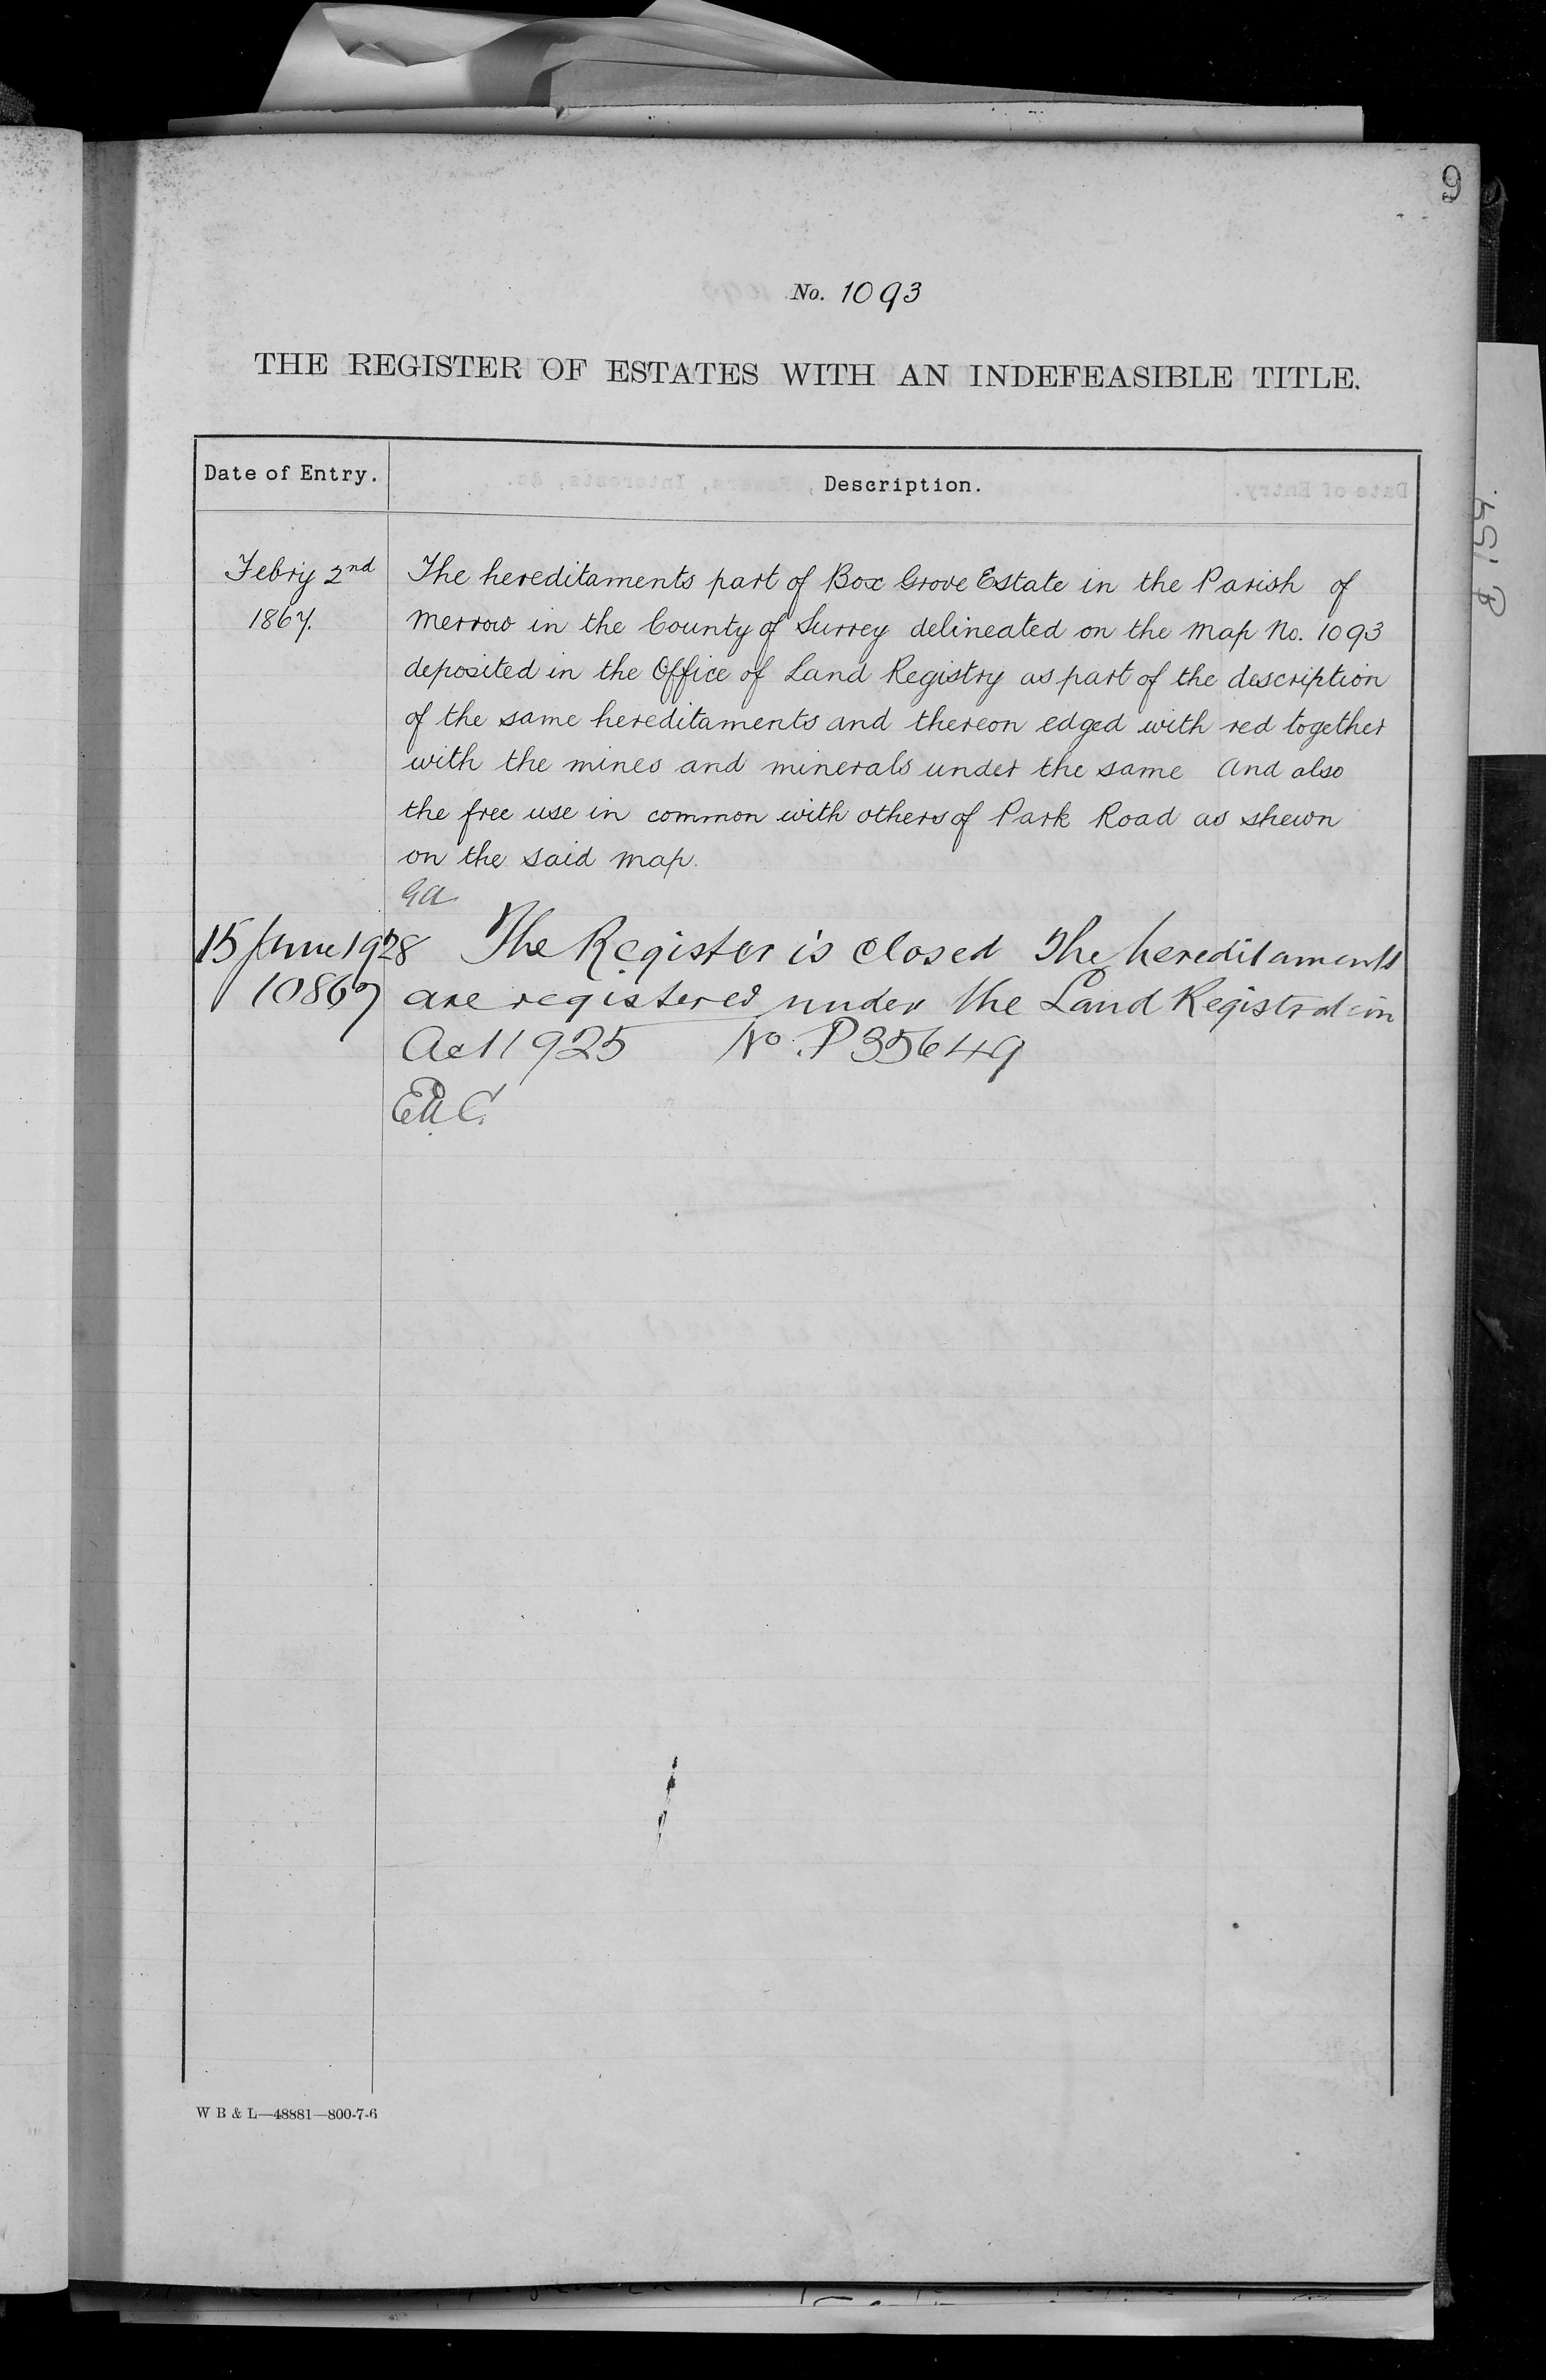 9
No. 1093
THE REGISTER OF ESTATES WITH AN INDEFEASIBLE TITLE.
Date of Entry.
Description.
Febry 2nd
1867.
The hereditaments part of Box Grove Estate in the Parish of
Merrow in the County of Surrey delineated on the Map No. 1093
deposited in the Office of Land Registry as part of the description
of the same hereditaments and thereon edged with red together
with the mines and minerals under the same And also
the free use in common with others of Park Road as shewn
on the said Map.
GA
15 June 1928
10867
The Register is closed The hereditaments
are registered under the Land Registration
Act 1925 No. P35649
W B & L—48881—800-7-6